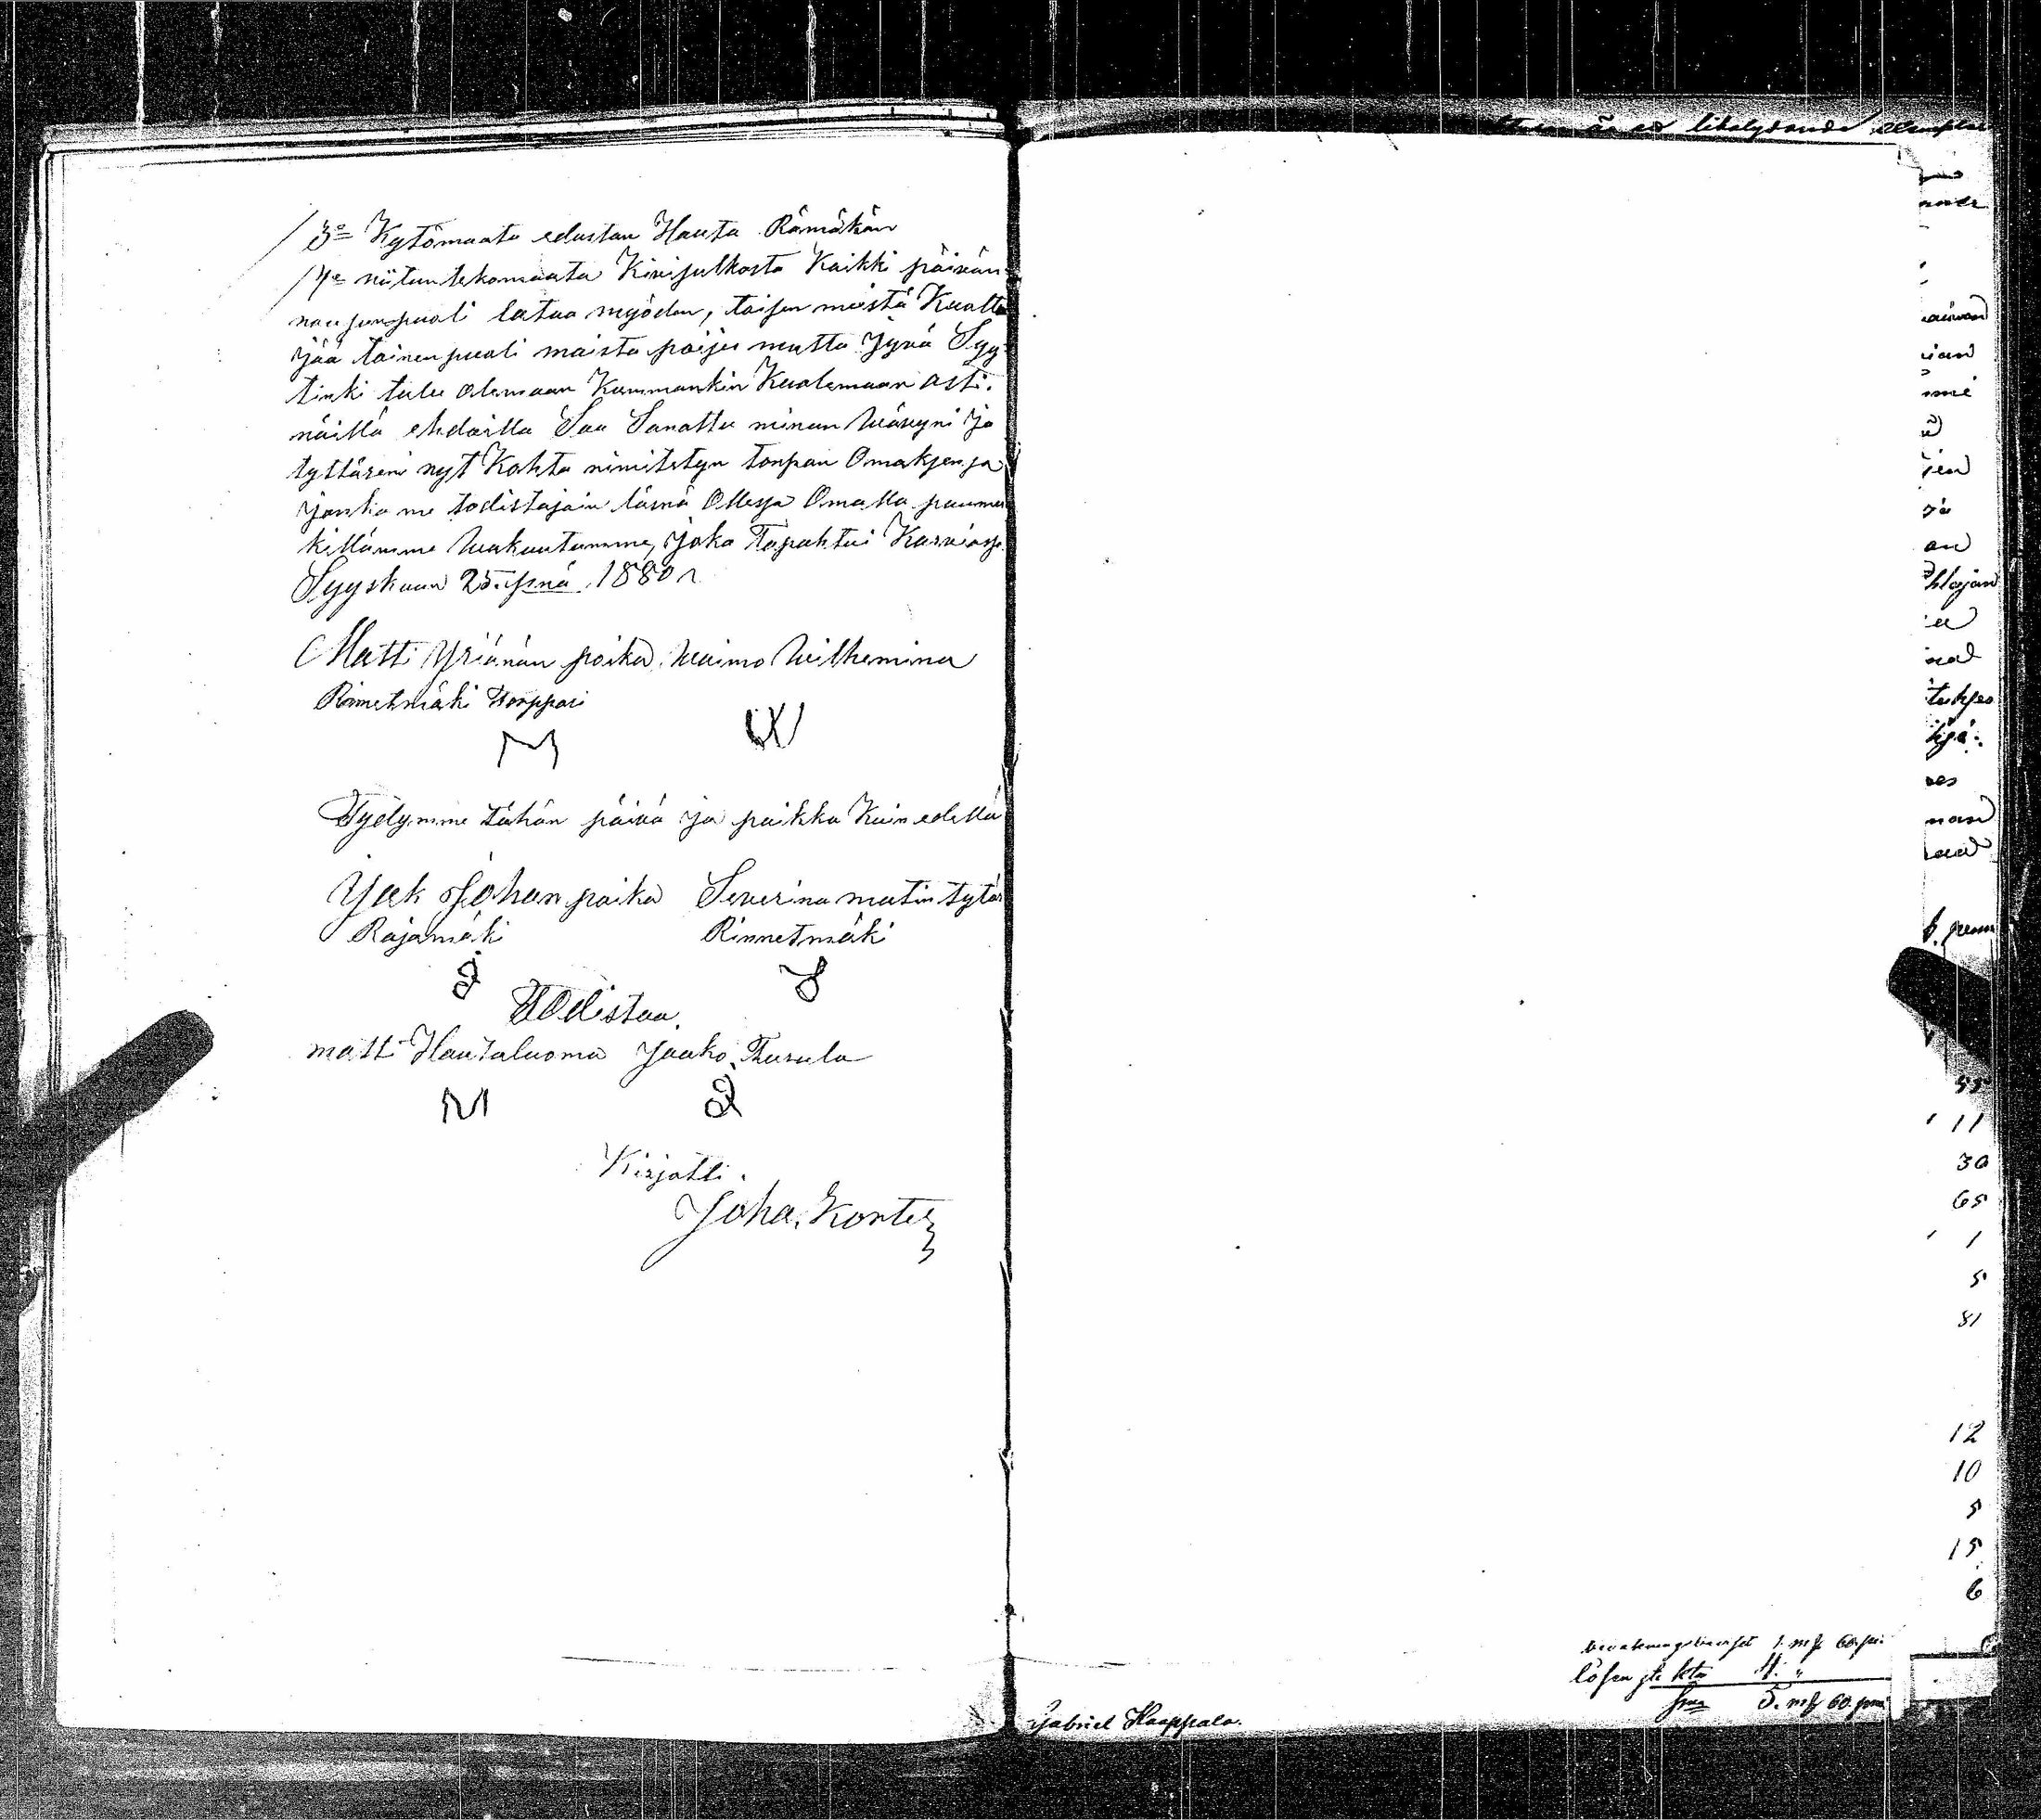 3o Kytömaata edustan Hauta Rämäkän
4o niitun tekomaata Kivijulkosta Kaikki päivän
nousunpuoli latua myöden, toisen meistä Kuoltua
jää toinen puoli maista poijes mutta jyvä Syy-
tinki tulee olemaan Kummankin Kuolemaan asti.
näillä ehdoilla Saa Sanottu minun Wävyni ja
tyttäreni nyt Kohta nimitetyn torpan Omaksensa
jonka me todistajain läsnä Ollessa Omalla puumer
killämme Wakuutamme, joka Tapahtui Karviassa
Syyskuun 25. p:nä 1880
Matti Yrjänän poika Waimo Wilhemina
Rinnetmäki Torppari
Tydymme tähän päivä ja paikka Kuin edellä
Jaak Johan poika Severina matin tytär
Rajamäki Rinnetmäki
Todistaa.
matti Hautaluoma Jaako
Kirjotti.
Joha. Konte
är ett likalydande exemplar
hlajan
55
11
30
65
1
5
81
12
10
5
15
6
1. mk 60 pi.
lösen 4. "
S:ma 5. mk 60. pni
Gabriel Haappala.